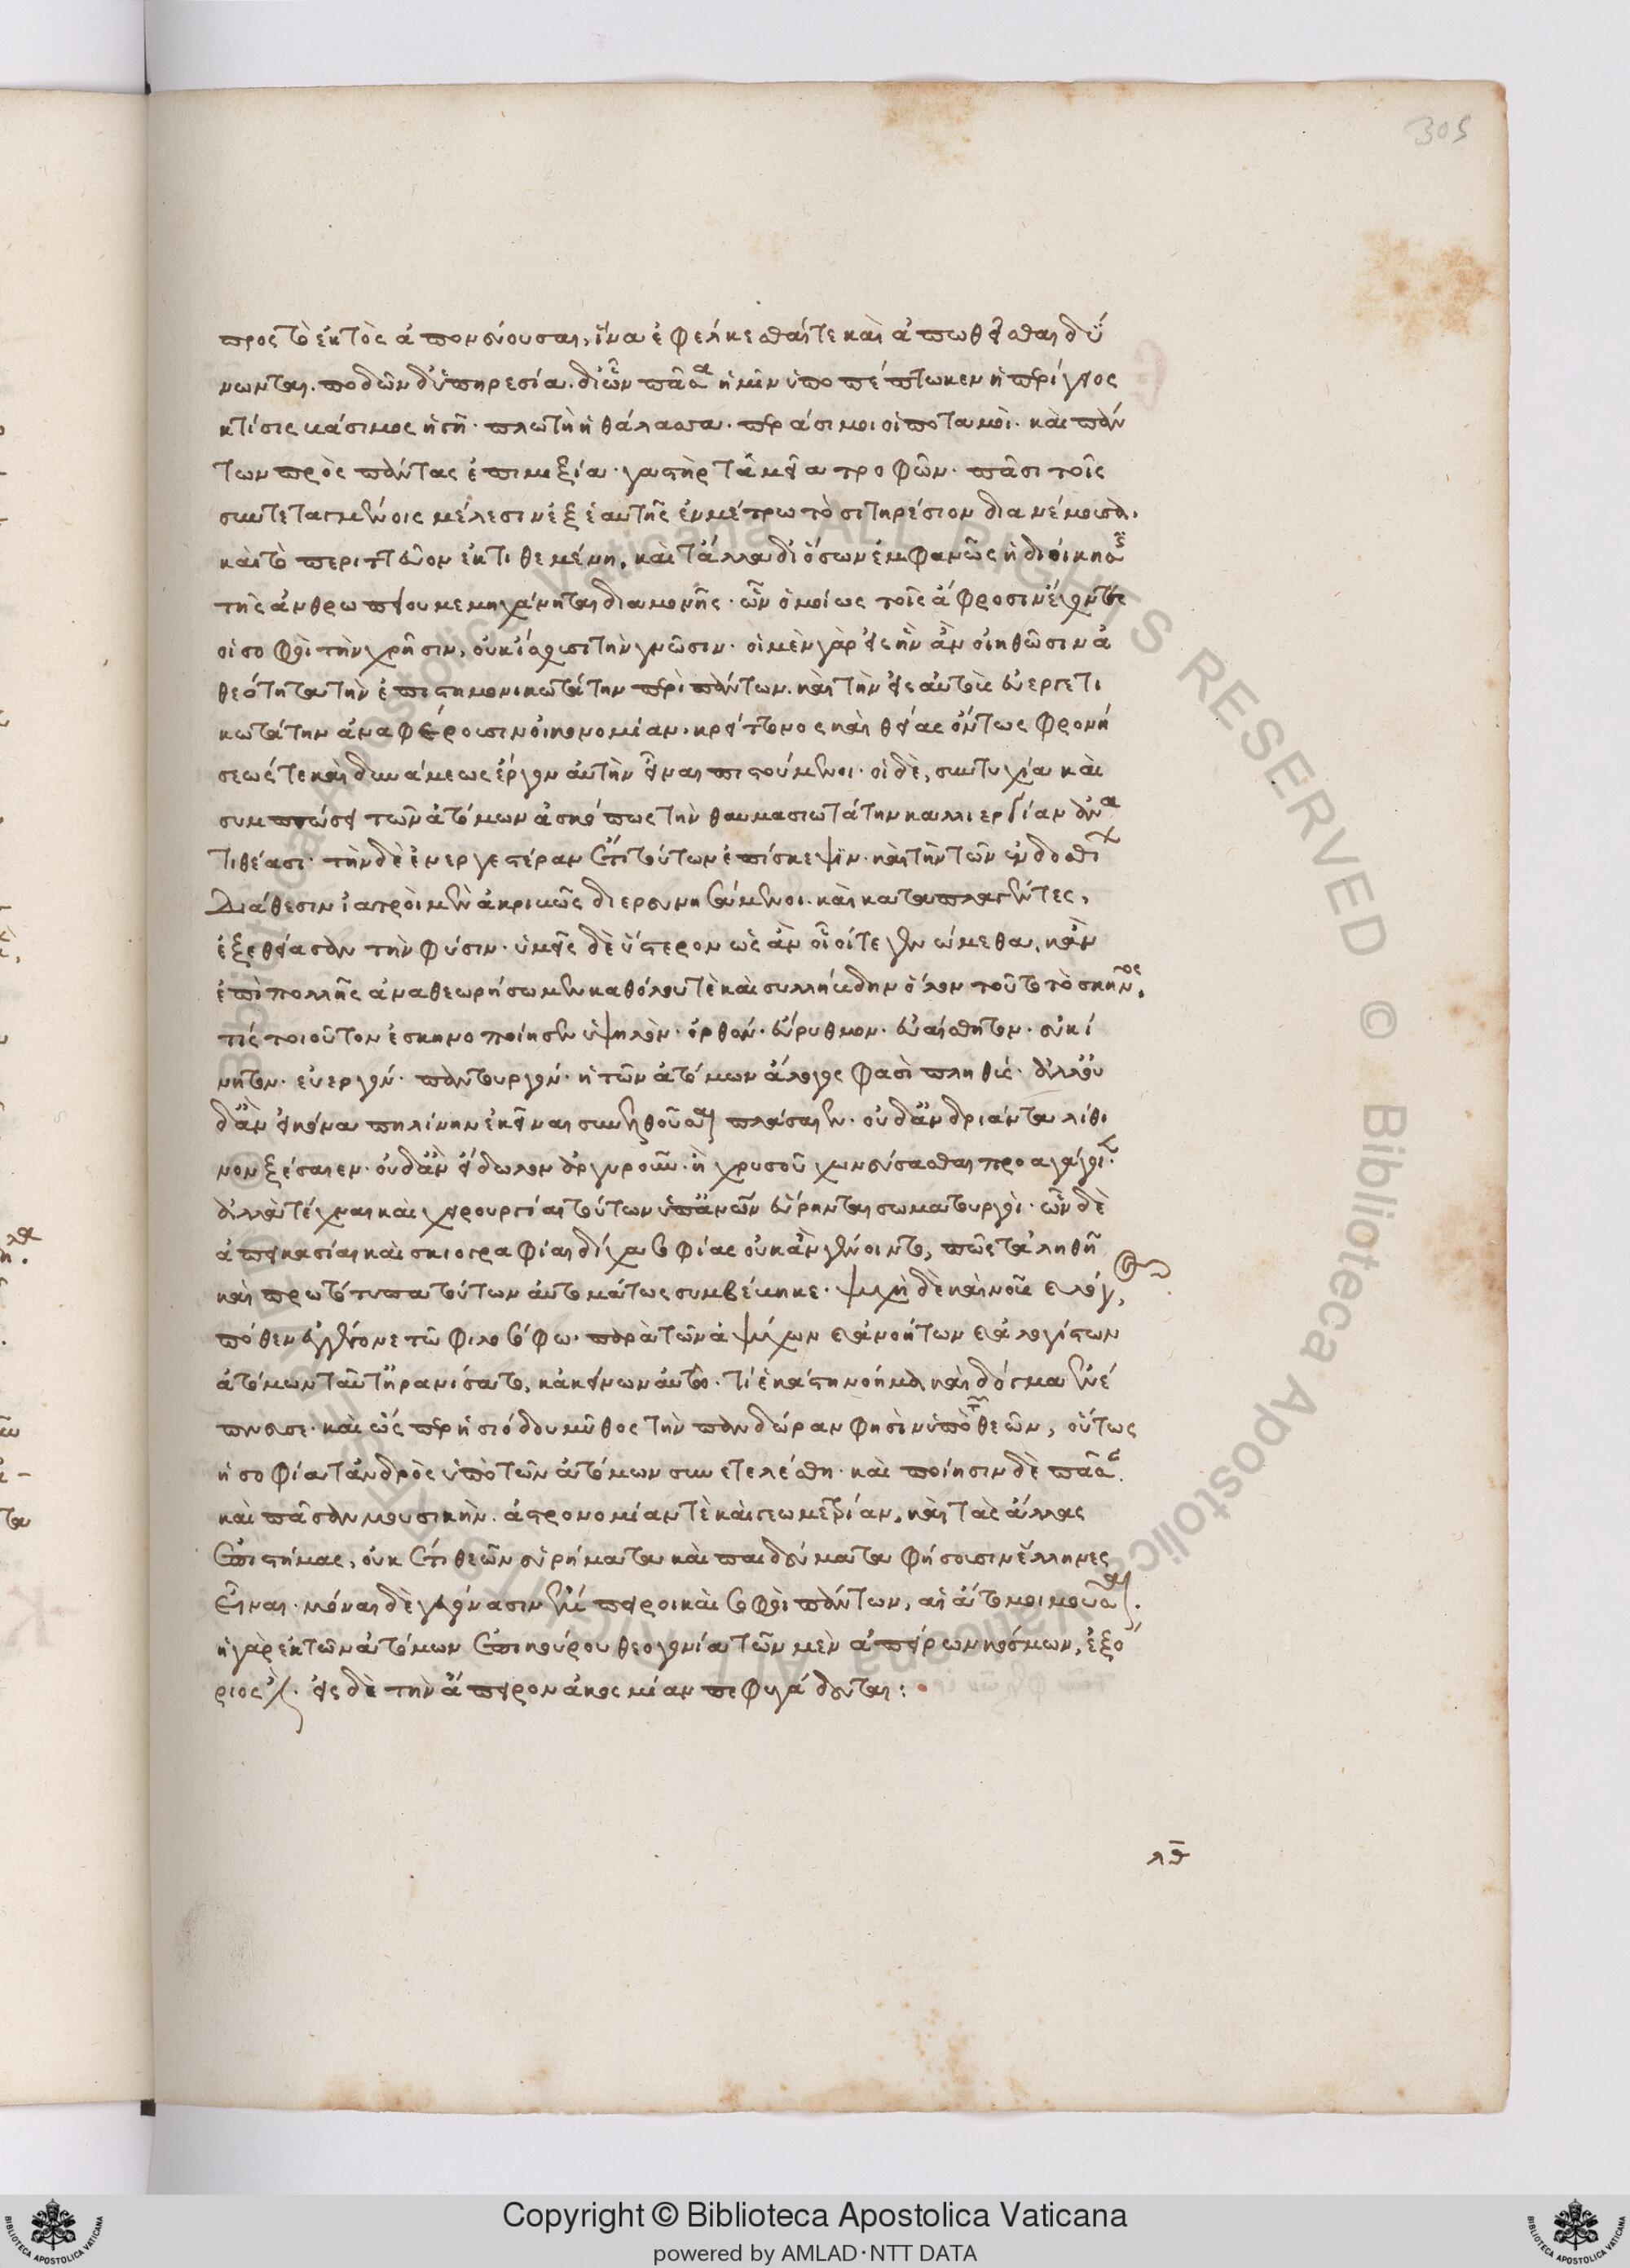 305
προς τὸ ἐκτὸς ἀπονεύουσαι, ἵνα ἐφέλκεσθαί τε καὶ ἀπωθεῖσθαι δύ
νωνται. ποδῶν δ' ὑπηρεσία. δι' ὧν πᾶσα ἡμῖν ὑποπέπτωκεν ἡ περίγειος
κτίσις βάσιμος ἡ γῆ. πλωτὴ ἡ θάλασσα. περάσιμοι οἱ ποταμοὶ. καὶ πάν
των πρὸς πάντας ἐπιμιξία. γαστὴρ ταμεῖα τροφῶν. πᾶσι τοῖς
συντεταγμένοις μέλεσιν ἐξ ἑαυτῆς ἐν μέτρω τὸ σιτηρέσιον διανέμουσα.
καὶ τὸ περιττεῦον ἐκτιθεμένη. καὶ τἄλλα δι' ὅσων ἐμφανῶς ἡ διοίκησις
τῆς ἀνθρωπείου μεμηχάνηται διαμονῆς. ὧν ὁμοίως τοῖς ἄφροσιν ἔχοντες
οἱ σοφοὶ τὴν χρῆσιν, οὐκ ἴσχουσι τὴν γνῶσιν. οἱ μὲν γὰρ εἰς ἣν ἂν οἰηθῶσιν ἀ
θεότητα τὴν ἐπιστημονικωτάτην περὶ πάντων. καὶ τὴν εἰς αὐτοὺς εὐεργετι
κωτάτην ἀναφέρουσιν οἰκονομίαν. κρείττονος καὶ θείας ὄντως φρονή
σεώς τε καὶ δυνάμεως ἔργον αὐτὴν εἶναι πιστούμενοι. οἱ δὲ, συντυχία καὶ
συμπτώσει τῶν ἀτόμων ἀσκόπως τὴν θαυμασιωτάτην καλλιεργίαν ἀνα
τιθέασι. τὴν δὲ ἐνεργεστέραν ἔτι τούτων ἐπίσκεψιν. καὶ τὴν τῶν ἐνδοσθίων
διάθεσιν ἰατροὶ μὲν ἀκριβῶς διερευνησάμενοι. καὶ καταπλαγέντες,
ἐξεθείασαν τὴν φύσιν. ἡμεῖς δὲ ὕστερον ὡς ἂν οἷοί τε γενώμεθα, κἂν
ἐπιπολῆς ἀναθεωρήσωμεν καθόλου τὲ καὶ συλλήβδην ὅλον τοῦτο τὸ σκῆνος.
τίς τοιοῦτον ἐσκηνοποίησεν ὑψηλὸν. ὀρθόν. εὔρυθμον. εὐαίσθητον. εὐκί
νητον. εὐεργόν. παντουργόν. ἡ τῶν ἀτόμων ἄλογός φασὶ πληθύς. ἀλλ' οὐ
δ' ἂν εἰκόνα πηλίνην ἐκεῖναι συνελθοῦσαι πλάσαιεν. οὐδ' ἀνδριάντα λίθι
νον ξέσαιεν. οὐδ' ἂν εἴδωλον ἀργυροῦν. ἢ χρυσοῦν χωνεύσασθαι προαγάγοιεν.
ἀλλὰ τέχναι καὶ χειρουργίαι τούτων ὑπ' ἀνθρώπων εὕρηνται σωματουργοὶ. ὧν δὲ
ἀπεικασίαι καὶ σκιογραφίαι δίχα σοφίας οὐκ ἂν γένοιντο, πῶς τἀληθῆ
καὶ πρωτότυπα τούτων αὐτομάτως συμβέβηκε. ψυχὴ δὲ καὶ νοῦς καὶ λόγος,
πόθεν ἐγγέγονε τῶ φιλοσόφω. παρὰ τῶν ἀψύχων καὶ ἀνοήτων καὶ ἀλογίστων
ἀτόμων ταῦτ' ἠρανίσατο, κἀκείνων αὐτῶ. τί ἑκάστη νόημα καὶ δόγμα ἐνέ
πνευσε. καὶ ὡς περ ἡσιόδου μῦθος τὴν πανδώραν φησὶν ὑπὸ τῶν θεῶν, οὕτως
ἡ σοφία τἀνδρὸς ὑπὸ τῶν ἀτόμων συνετελέσθη. καὶ ποίησιν δὲ πᾶσαν.
καὶ πᾶσαν μουσικὴν. ἀστρονομίαν τὲ καὶ γεωμετρίαν, καὶ τὰς ἄλλας
ἐπιστήμας, οὐκ ἔτι θεῶν εὑρήματα καὶ παιδεύματα φήσουσιν ἕλληνες
εἶναι. μόναι δὲ γεγόνασιν ἔμπειροι καὶ σοφοὶ πάντων, αἱ ἄτομοι μοῦσαι.
ἡ γὰρ ἐκ τῶν ἀτόμων ἐπικούρου θεογονία τῶν μὲν ἀπείρων κόσμων, ἐξό
ριός ἐστιν. εἰς δὲ τὴν ἄπειρον ἀκοσμίαν πεφυγάδευται:
λθ
Copyright © Biblioteca Apostolica Vaticana
powered by AMLAD·NTT DATA